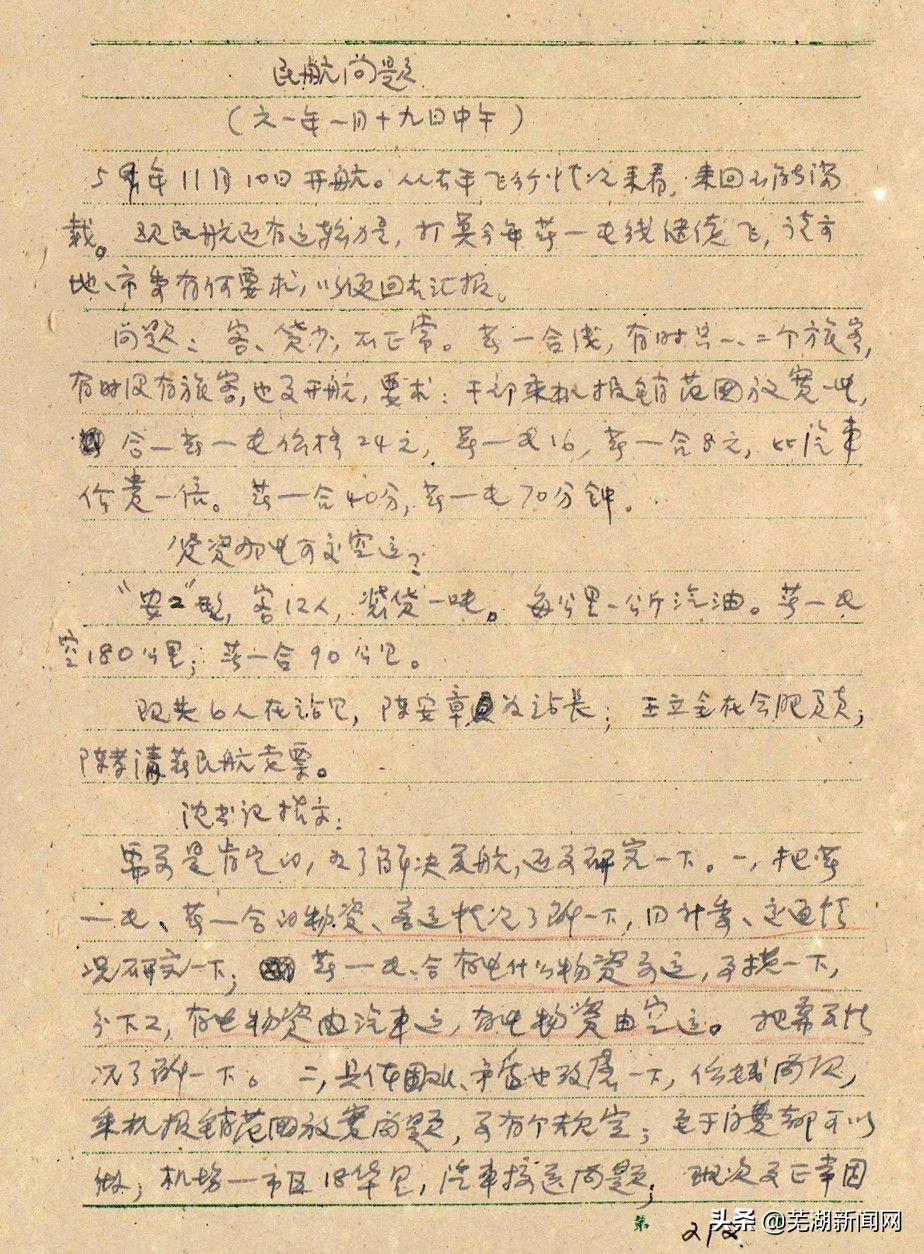 民航问题
(六一年一月十九日中午)
5年11月10日开航。从去年飞行情况来看,来回不能满
载。现民航还有运输力量,打算今年芜一屯线继续飞,
地、市委有何要求,以便回去汇报。
问题:客、货少,不正常。芜一合线,有时只一、二个旅客,
有时没有旅客,也要开航,要求:干部乘机报销范围放宽一些,
合一芜一屯价格24元,芜一屯16,芜一合8元,比汽车
价贵一倍。芜一合40分,芜一屯70分钟。
物资那些可交空运?
“安2”型,客12人,装货一吨。每公里一公斤汽油。芜一屯
空180公里;芜一合90公里。
现共6人在站里,陈安章为站长;王立全在合肥
陈孝清芜民航卖票。
沈书记指示:
需要是肯定的,为了解决复航,还要研究一下。一,把芜
一屯、芜一合的物资、客运状况了解一下,同计委、交通情
况研究一下;芜一屯、合有些什么物资要运,要摸一下,
分下工,有些物资由汽车运,有些物资由空运。把需要情
况了解一下。二,具体困难、矛盾也改善一下,价钱问题,
乘机报销范围放宽问题,要有个规定;至于自费都可以
做;机场一市区18华里,汽车接送问题;班次要正常固
第
212
头条 @芜湖新闻网